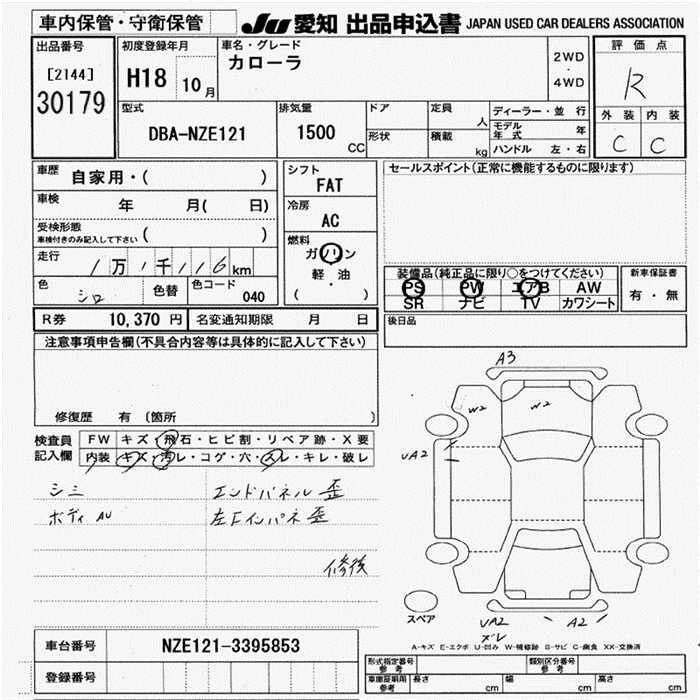 車内保管・守衛保管
JU 愛知 出品申込書 JAPAN USED CAR DEALERS ASSOCIATION
出品番号
[2144]
30179
初度登録年月
H18 10月
車名・グレード
カローラ
2WD
・
4WD
評価点
R
外装 内装
C C
型式
DBA-NZE121
排気量
1500 CC
ドア
形状
定員 人
積載 kg
ディーラー・並 行
モデル年式 年
ハンドル 左・右
車歴 自家用・( )
車検 年 月( 日)
受検形態
車検付きのみ記入して下さい ( )
走行
1万1千116km
色
シロ
色替
色コード
040
シフト
FAT
冷房
AC
燃料
ガソリン
軽・油
( )
セールスポイント(正常に機能するものに限ります)
装備品(純正品に限り○をつけてください)
PS PW エアB AW
SR ナビ TV カワシート
新車保証書
有・無
後日品
R券 10,370円 名変通知期限 月 日
注意事項申告欄(不具合内容等は具体的に記入して下さい)
修復歴 有 〔箇所 〕
検査員記入欄
FW キズ・飛石・ヒビ割・リペア跡・X要
内装 キズ・汚レ・コゲ・穴・スレ・キレ・破レ
シミ エンドパネル 歪
ボディ AU 左Fインパネ 歪
修後
A3
W2 W2
UA2
スペア
UA2 A2
ズレ
A-キズ E-エクボ U-凹み W-補修跡 S-サビ C-腐食 XX-交換済
車台番号 NZE121-3395853
登録番号
形式指定番号
参考
類別区分番号
参考
車庫証明用
参考
長さ cm 幅 cm 高さ cm